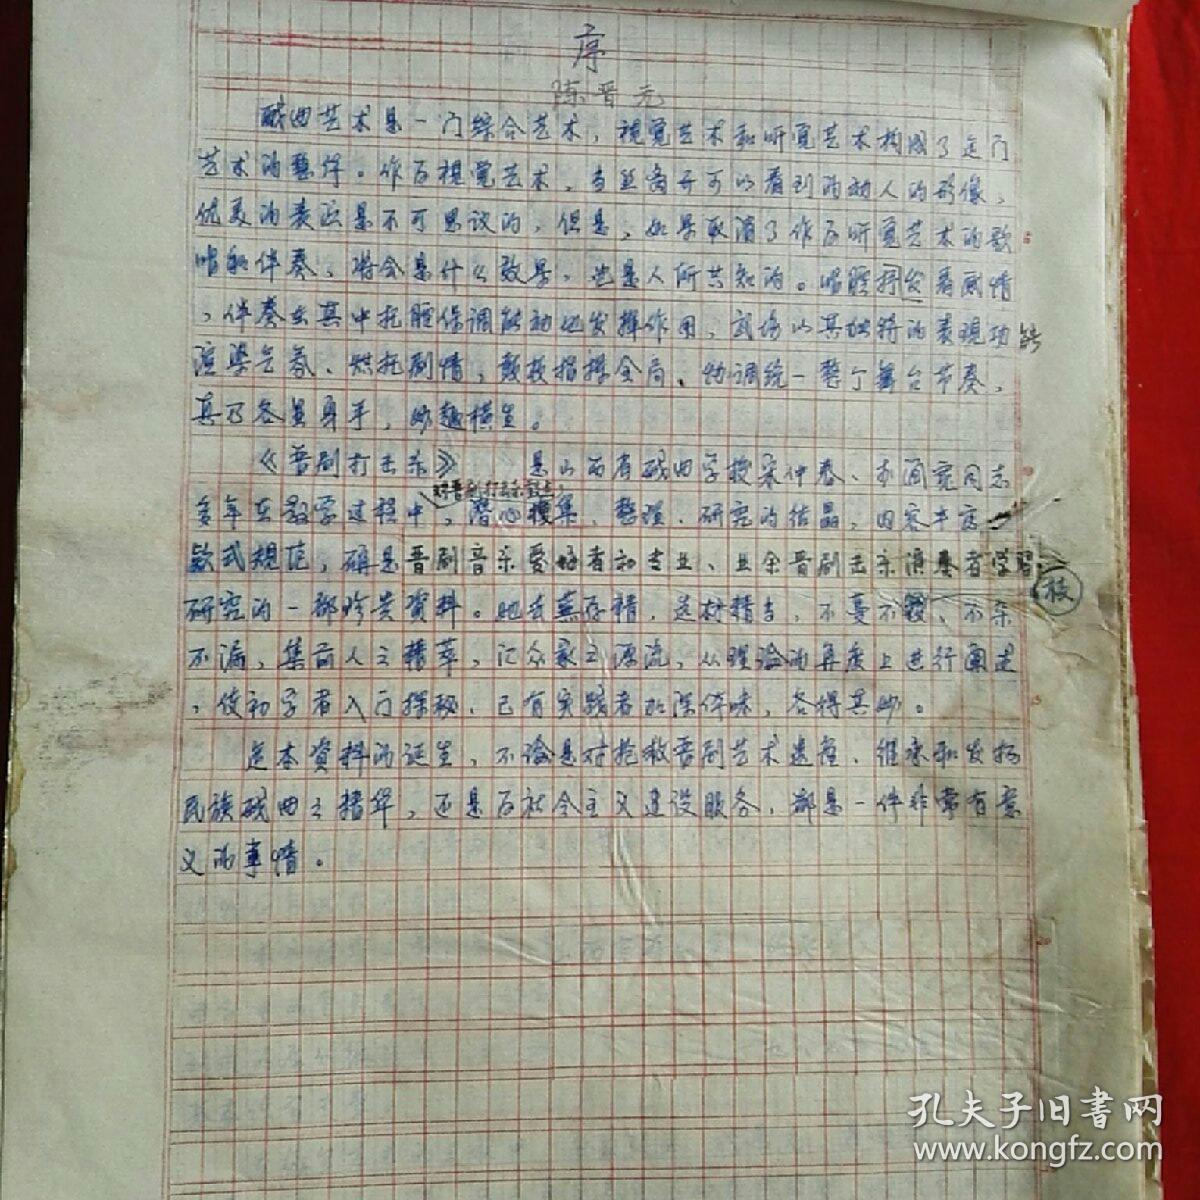 序
陈晋元
戏曲艺术是一门综合艺术，视觉艺术和听觉艺术构成了这门
艺术的整体。作为视觉艺术，当然离开可以看到的动人的形像，
优美的表演是不可思议的，但是，如果取消了作为听觉艺术的歌
唱和伴奏，将会是什么效果，也是人所共知的。唱腔抒发着感情
，伴奏在其中托腔保调能动地发挥作用，武场以其独特的表现功能
渲染气氛、烘托剧情，鼓板指挥全局、协调统一整个舞台节奏，
真乃各显身手，妙趣横生。
《晋剧打击乐》 是山西省戏曲学校宋仲春、李通宽同志
对晋剧打击乐
多年在教学过程中，潜心搜集、整理、研究的结晶，内容丰富
款式规范，确是晋剧音乐爱好者和专业、业余晋剧击乐演奏者学习
研究的一部珍贵资料。她去芜存精，选材精当，不蔓不 、不杂
枝
不漏，集前人之精萃，汇众家之源流，从理论的角度上进行阐述
，使初学者入门探秘，已有实践者加深体味，各得其妙。
这本资料的诞生，不论是对抢救晋剧艺术遗产、继承和发扬
民族戏曲之精华，还是为社会主义建设服务，都是一件非常有意
义的事情。
孔夫子旧书网
www.kongfz.com